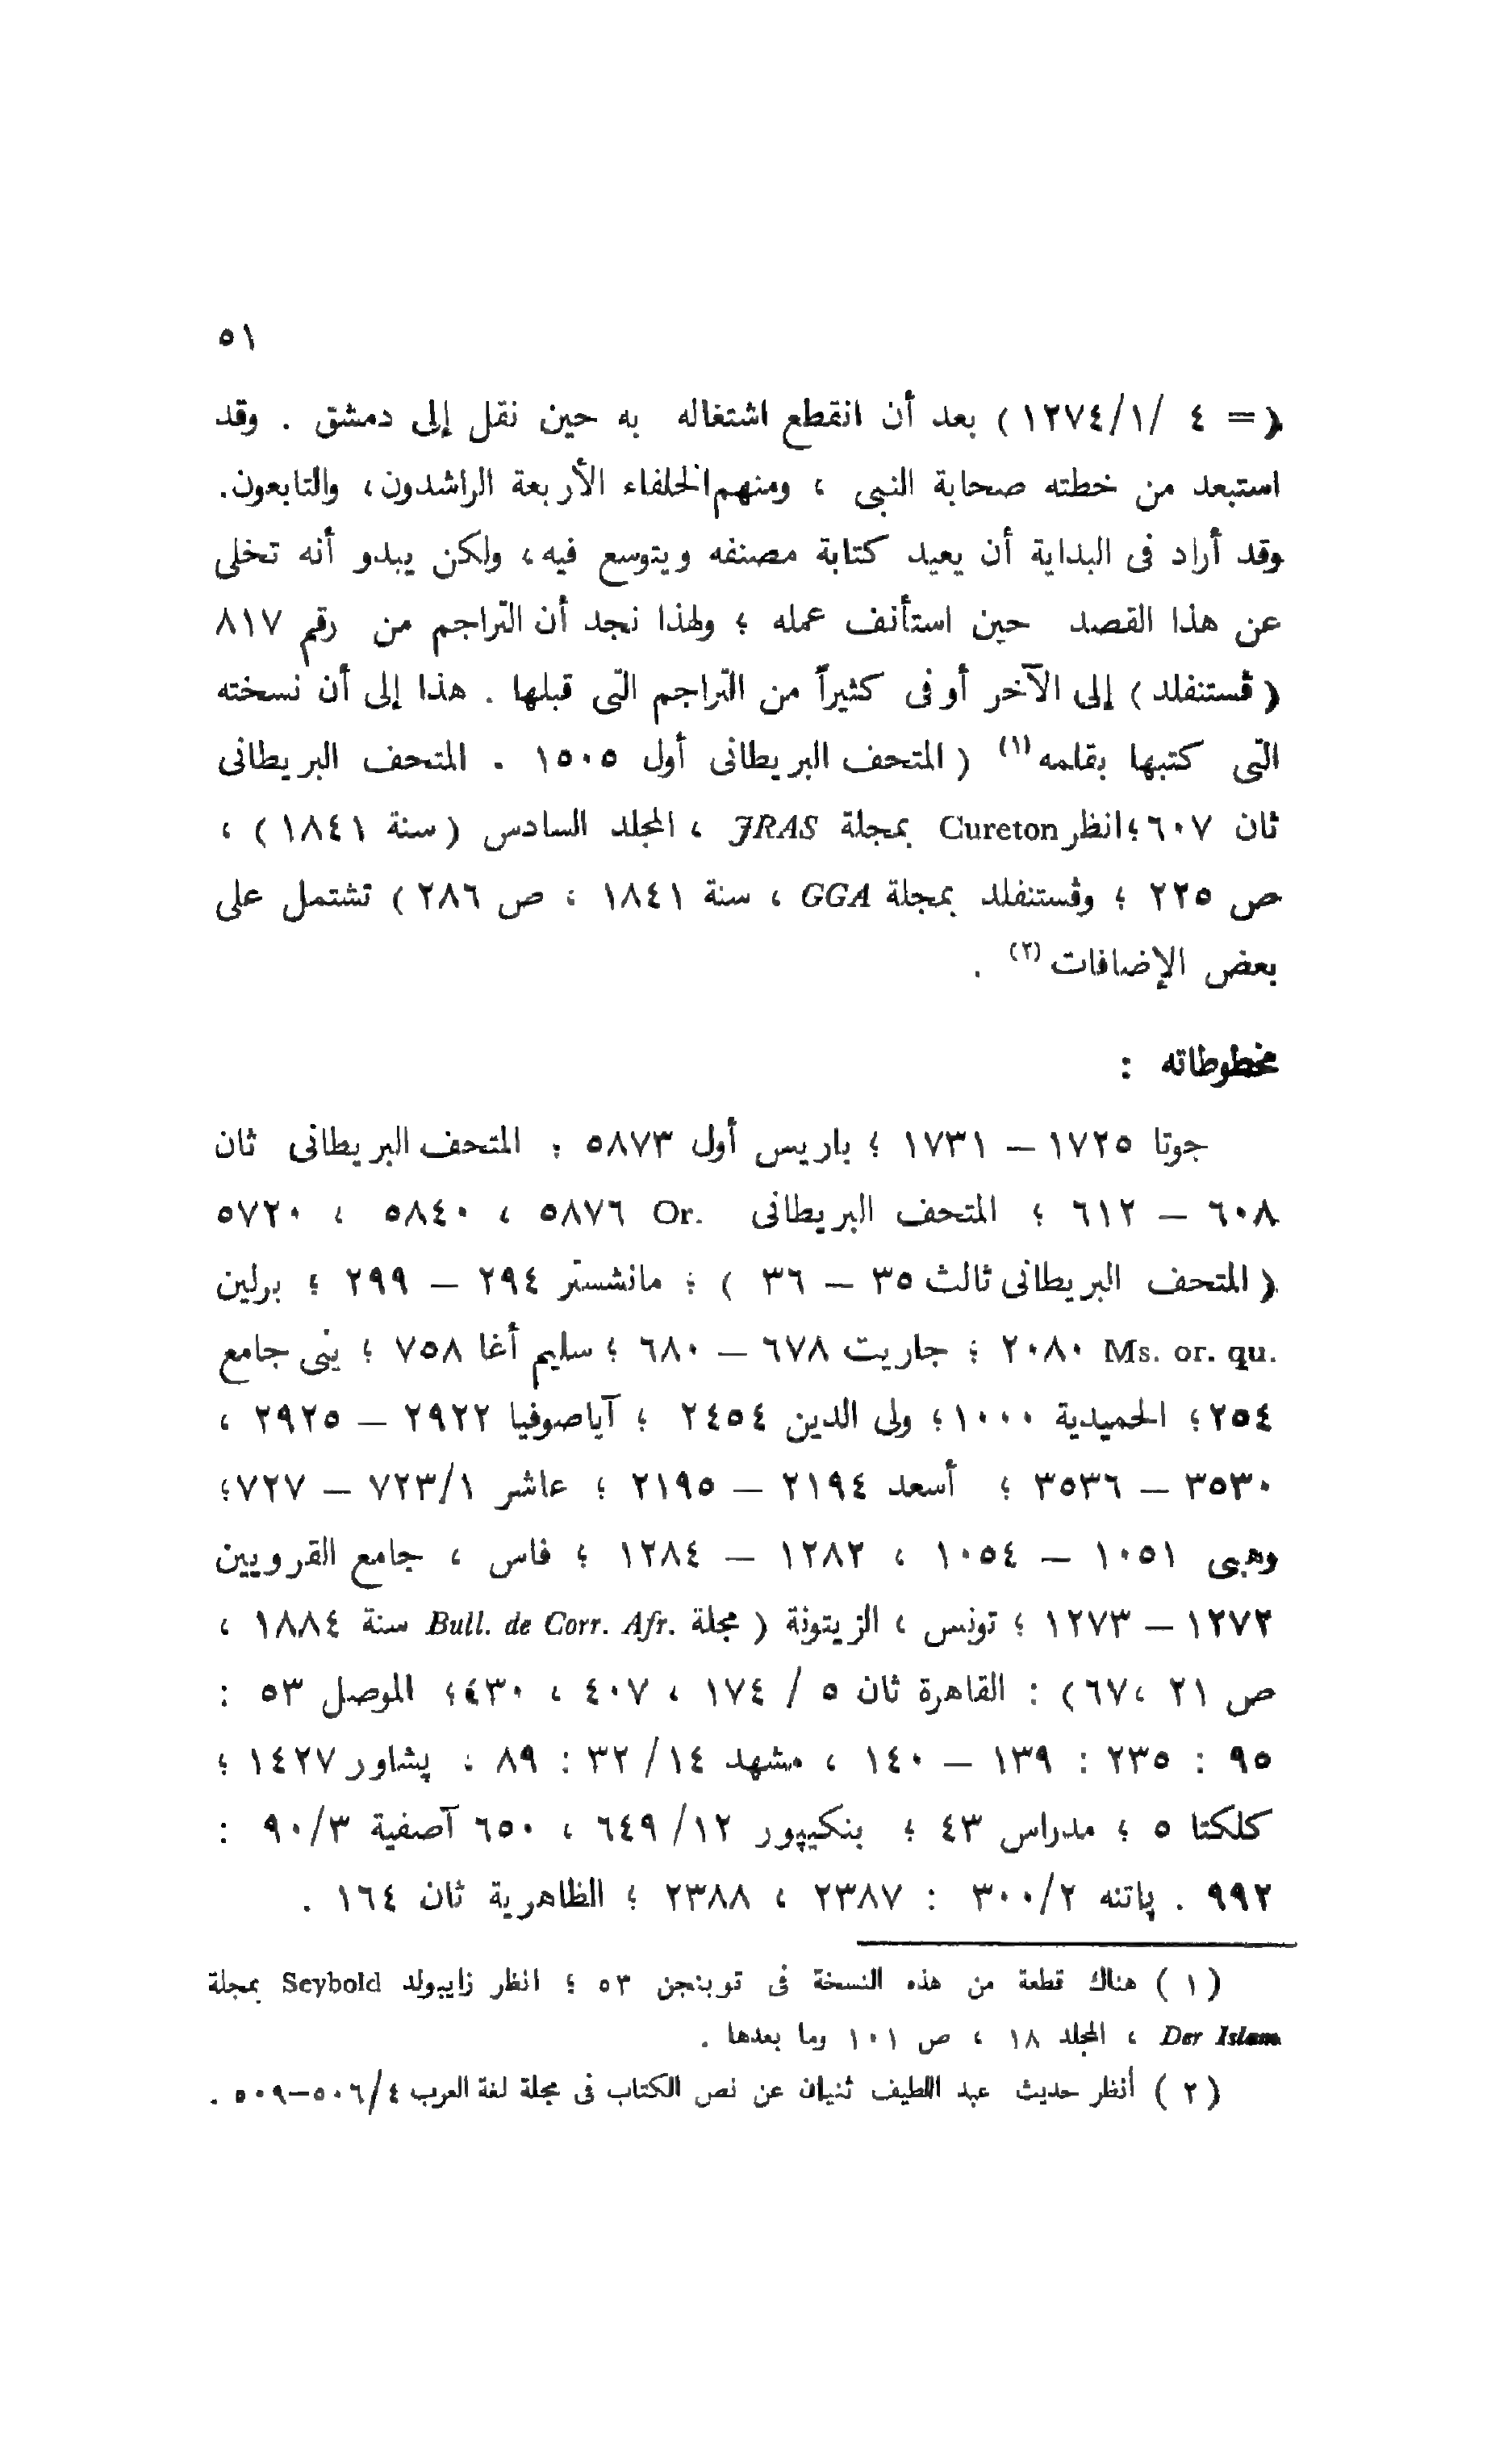 ٥١
( = ٤ /١٢٧٤/١ ) بعد أن انقطع اشتغاله به حين نقل إلى دمشق . وقد
استبعد من خطته صحابة النبى ، ومنهم الخلفاء الأربعة الراشدون ، والتابعون .
وقد أراد فى البداية أن يعيد كتابة مصنفه ويتوسع فيه ، ولكن يبدو أنه تخلى
عن هذا القصد حين استأنف عمله ؛ ولهذا نجد أن التراجم من رقم ٨١٧
( ڤستنفلد ) إلى الآخر أوفى كثيراً من التراجم التى قبلها . هذا إلى أن نسخته
التى كتبها بقلمه (١) ( المتحف البريطانى أول ١٥٠٥ . المتحف البريطانى
ثان ٦٠٧ ؛ انظر Cureton بمجلة JRAS ، المجلد السادس ( سنة ١٨٤١ ) ،
ص ٢٢٥ ؛ وڤستنفلد بمجلة GGA ، سنة ١٨٤١ ؛ ص ٢٨٦ ) تشتمل على
بعض الإضافات (٢) .
مخطوطاته :
جوتا ١٧٢٥ – ١٧٣١ ؛ باريس أول ٥٨٧٣ ؛ المتحف البريطانى ثان
٦٠٨ – ٦١٢ ؛ المتحف البريطانى Or. ٥٨٧٦ ، ٥٨٤٠ ، ٥٧٢٠
( المتحف البريطانى ثالث ٣٥ – ٣٦ ) ؛ مانشستر ٢٩٤ – ٢٩٩ ؛ برلين
Ms. or. qu. ٢٠٨٠ ؛ جاريت ٦٧٨ – ٦٨٠ ؛ سليم أغا ٧٥٨ ؛ ينى جامع
٢٥٤ ؛ الحميدية ١٠٠٠ ؛ ولى الدين ٢٤٥٤ ؛ آياصوفيا ٢٩٢٢ – ٢٩٢٥ ،
٣٥٣٠ – ٣٥٣٦ ؛ أسعد ٢١٩٤ – ٢١٩٥ ؛ عاشر ٧٢٣/١ – ٧٢٧ ؛
وهبى ١٠٥١ – ١٠٥٤ ، ١٢٨٢ – ١٢٨٤ ؛ فاس ، جامع القرويين
١٢٧٢ – ١٢٧٣ ؛ تونس ، الزيتونة ( مجلة Bull. de Corr. Afr. سنة ١٨٨٤ ،
ص ٢١ ، ٦٧ ) : القاهرة ثان ٥ / ١٧٤ ، ٤٠٧ ، ٤٣٠ ؛ الموصل ٥٣ :
٩٥ : ٢٣٥ : ١٣٩ – ١٤٠ ، مشهد ١٤ / ٣٢ : ٨٩ ؛ پشاور ١٤٢٧ ؛
كلكتا ٥ ؛ مدراس ٤٣ ؛ بنكيپور ١٢ / ٦٤٩ ، ٦٥٠ آصفية ٩٠/٣ :
٩٩٢ . پاتنه ٣٠٠/٢ : ٢٣٨٧ ، ٢٣٨٨ ؛ الظاهرية ثان ١٦٤ .
( ١ ) هناك قطعة من هذه النسخة فى توبنجن ٥٣ ؛ انظر زايبولد Seybold بمجلة
Der Islam ، المجلد ١٨ ، ص ١٠١ وما بعدها .
( ٢ ) أنظر حديث عبد اللطيف ثنيان عن نص الكتاب فى مجلة لغة العرب ٥٠٦/٤–٥٠٩ .